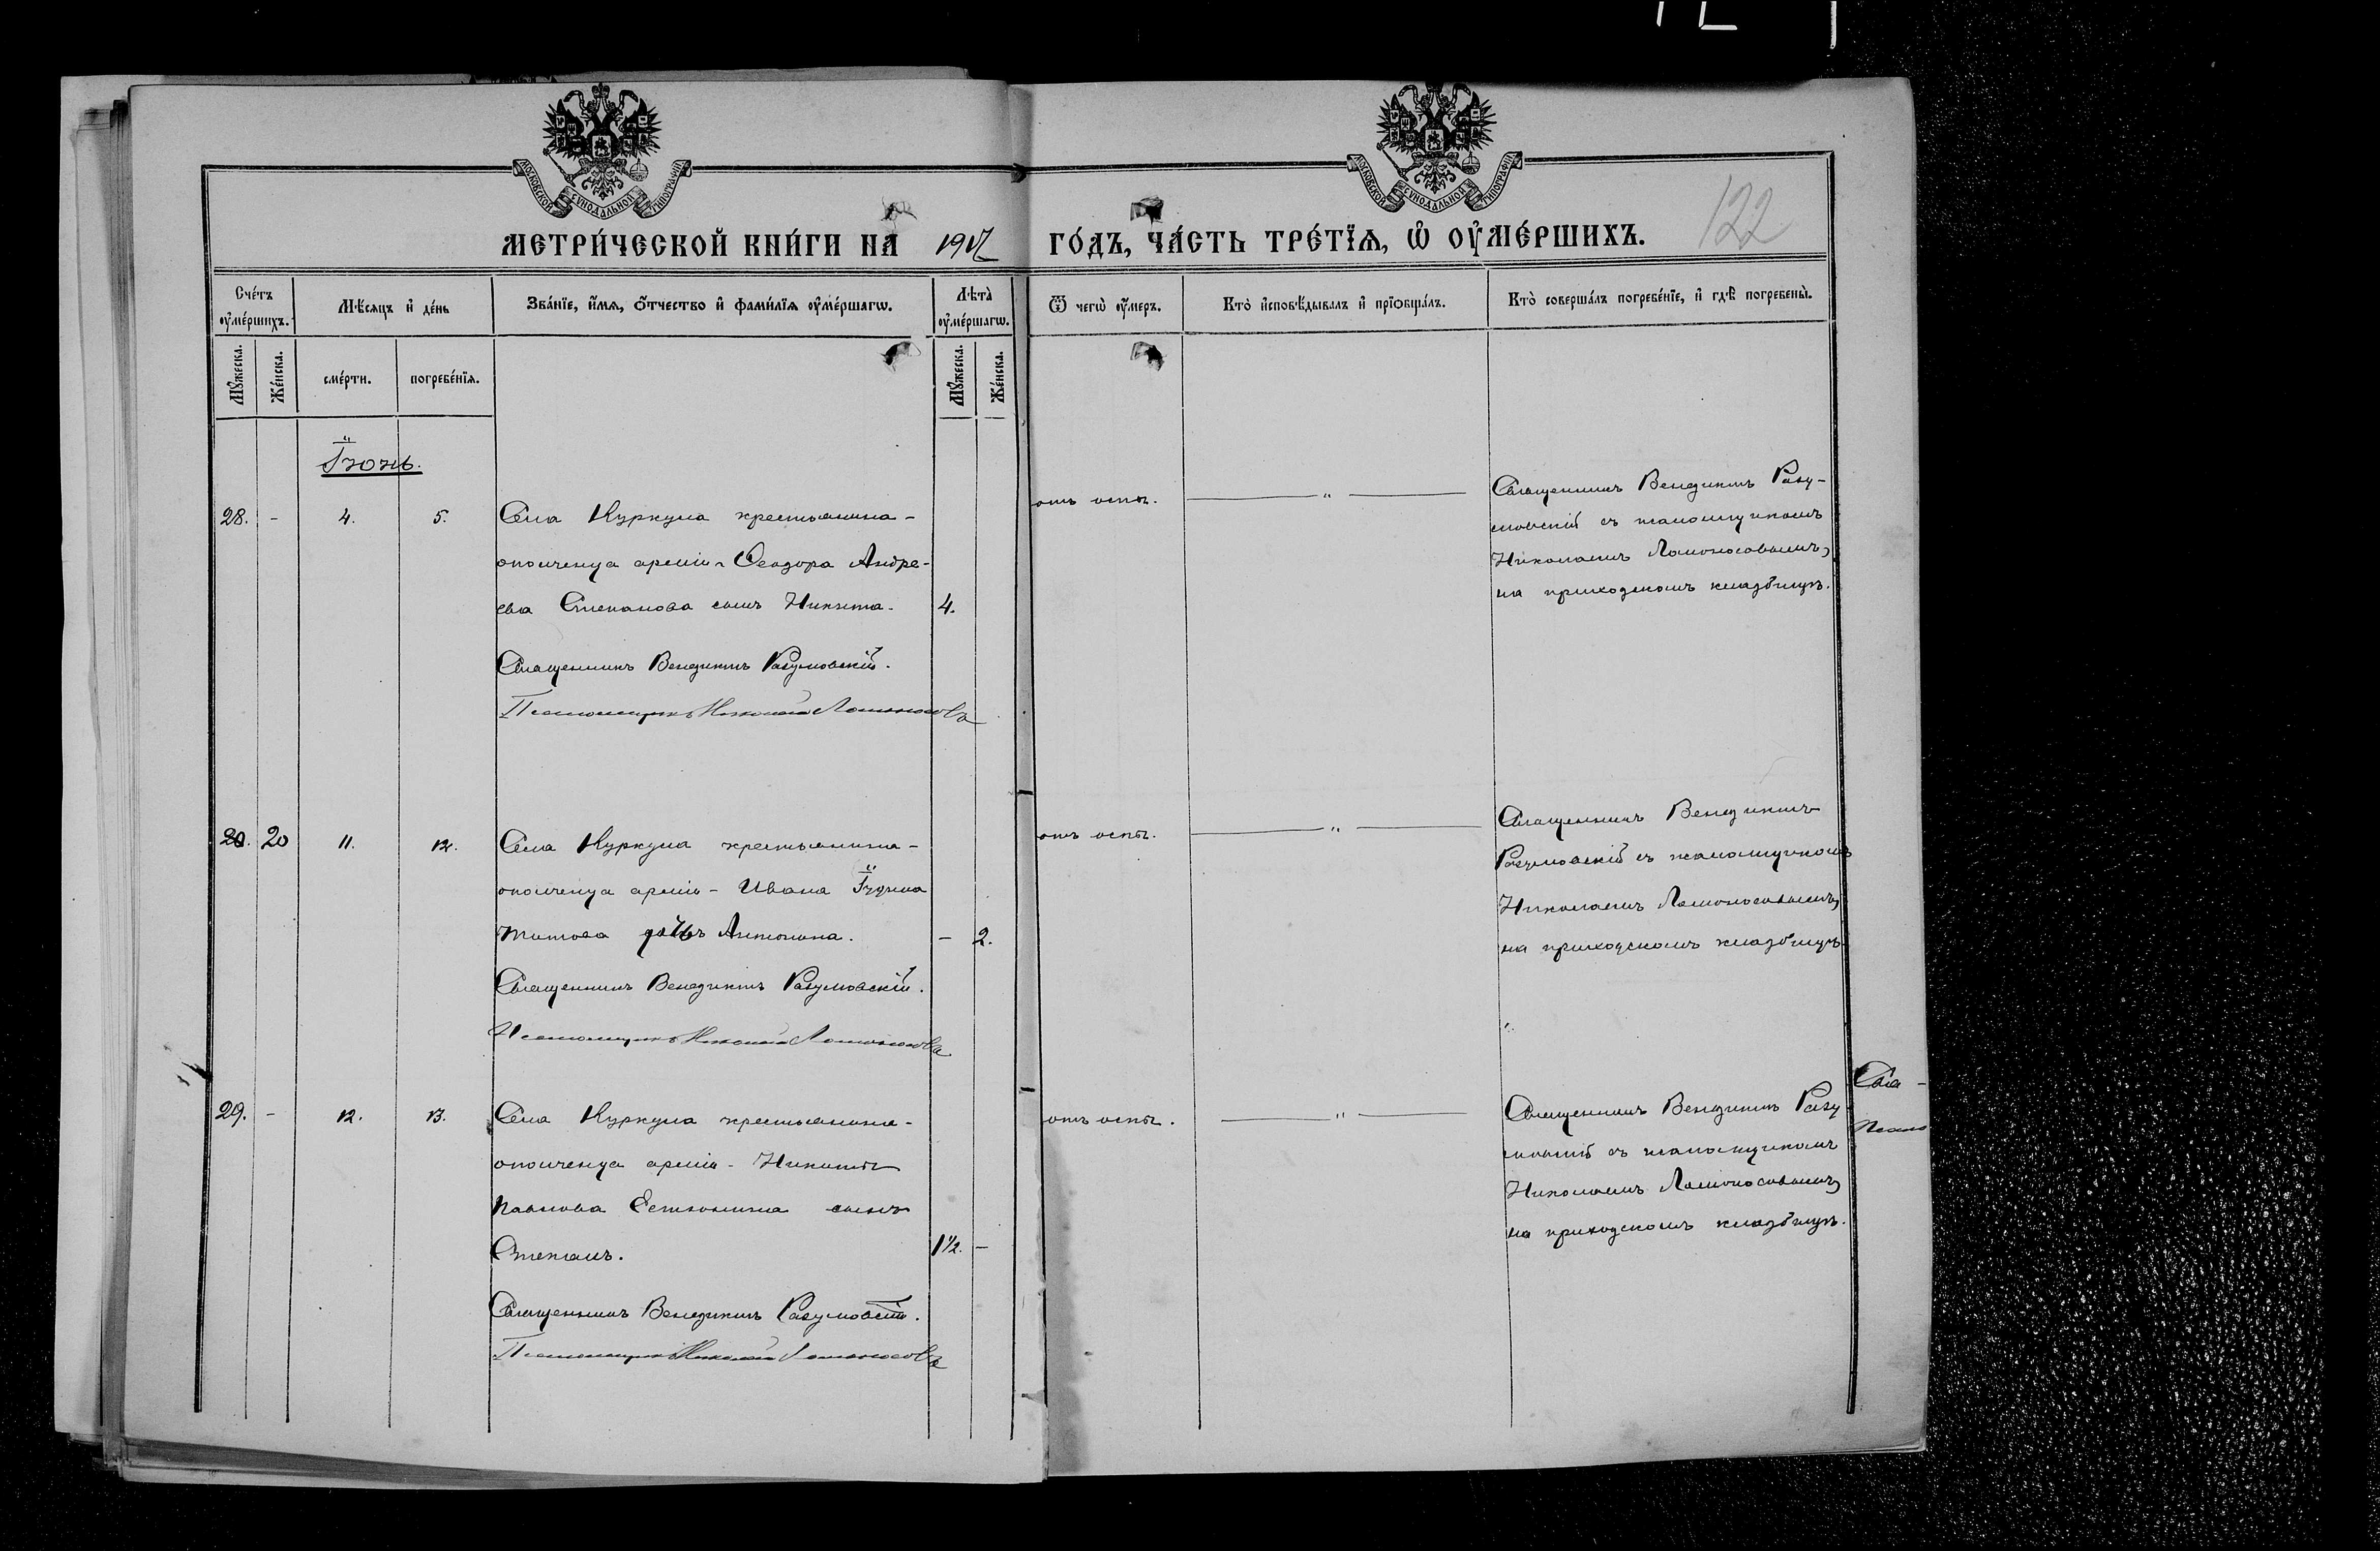 МОСКОВСКОЙ СѴНОДАЛЬНОЙ ТИПОГРАФІИ
МОСКОВСКОЙ СѴНОДАЛЬНОЙ ТИПОГРАФІИ
МЕТРИ́ЧЕСКОЙ КНИ́ГИ НА 1917 ГО́ДЪ, ЧА́СТЬ ТРЕ́ТЇѦ, Ѡ҆ ОУ҆МЕ́РШИХЪ.
122
Сче́тъ оу҆ме́ршихъ.
Мѣ́сяцъ и҆ де́нь
Зва́нїе, и҆́мѧ, ѻ҆́тчество и҆ фами́лїѧ оу҆ме́ршагѡ.
Лѣта̀ оу҆ме́ршагѡ.
Ѿ чегѡ̀ оу҆́меръ.
Кто̀ и҆сповѣ́дывалъ и҆ прїѻбща́лъ.
Кто̀ соверша́лъ погребе́нїе, и҆ гдѣ̀ погребены̀.
Мꙋ́жеска.
Же́нска.
сме́рти.
погребе́нїѧ.
Мꙋ́жеска.
Же́нска.
Іюнь.
28. - 4. 5.
Села Куркула крестьянина-
ополченца арміи - Ѳеодора Андре-
ева Степанова сынъ Никита. 4.
Священникъ Венедиктъ Разумовскій.
Псаломщикъ Николай Ломоносовъ
отъ оспы.
— " —
Священникъ Венедиктъ Разу-
мовскій съ псаломщикомъ
Николаемъ Ломоносовымъ,
на приходскомъ кладбищѣ.
20 11. 12.
Села Куркула крестьянина-
ополченца арміи - Ивана
Титова дочь Антонина. - 2.
Священникъ Венедиктъ Разумовскій.
Псаломщикъ Николай Ломоносовъ
отъ оспы.
— " —
Священникъ Венедиктъ
Разумовскій съ псаломщикомъ
Николаемъ Ломоносовымъ,
на приходскомъ кладбищѣ.
29. - 12. 13.
Села Куркула крестьянина-
ополченца арміи - Никиты
Павлова сынъ
Степанъ. 1½. -
Священникъ Венедиктъ Разумовскій.
Псаломщикъ Николай Ломоносовъ
отъ оспы.
— " —
Священникъ Венедиктъ Разу-
мовскій съ псаломщикомъ
Николаемъ Ломоносовымъ,
на приходскомъ кладбищѣ.